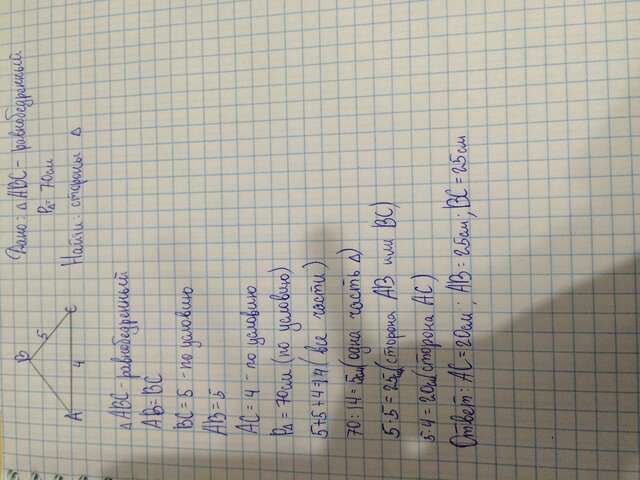 B
5
A
4
C
Дано: △ABC - равнобедренный
P△= 70см
Найти: стороны △
△ABC - равнобедренный
AB=BC
BC=5 - по условию
AB=5
AC=4 - по условию
P△=70см (по условию)
5+5+4=14 (все части)
70:14=5см (одна часть △)
5·5=25см (сторона AB или BC)
5·4=20см (сторона AC)
Ответ: AC=20см; AB=25см; BC=25см